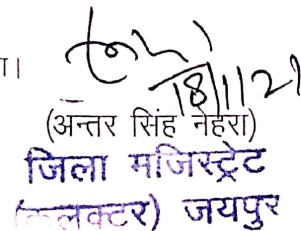 ा।
18/11/21
(अन्तर सिंह नेहरा)
जिला मजिस्ट्रेट
(कलक्टर) जयपुर